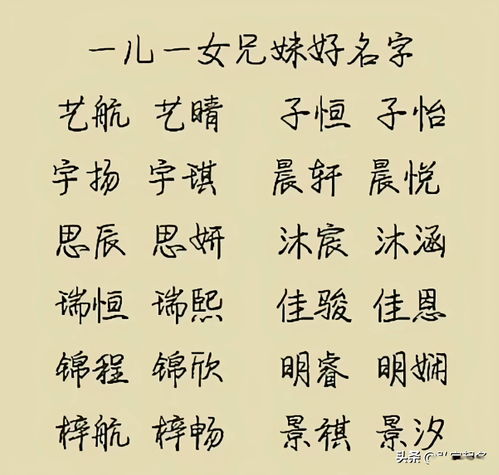 一儿一女兄妹好名字
艺航 艺晴 子恒 子怡
宇扬 宇琪 晨轩 晨悦
思辰 思妍 沐宸 沐涵
瑞恒 瑞熙 佳骏 佳恩
锦程 锦欣 明睿 明娴
梓航 梓畅 景祺 景汐
头条